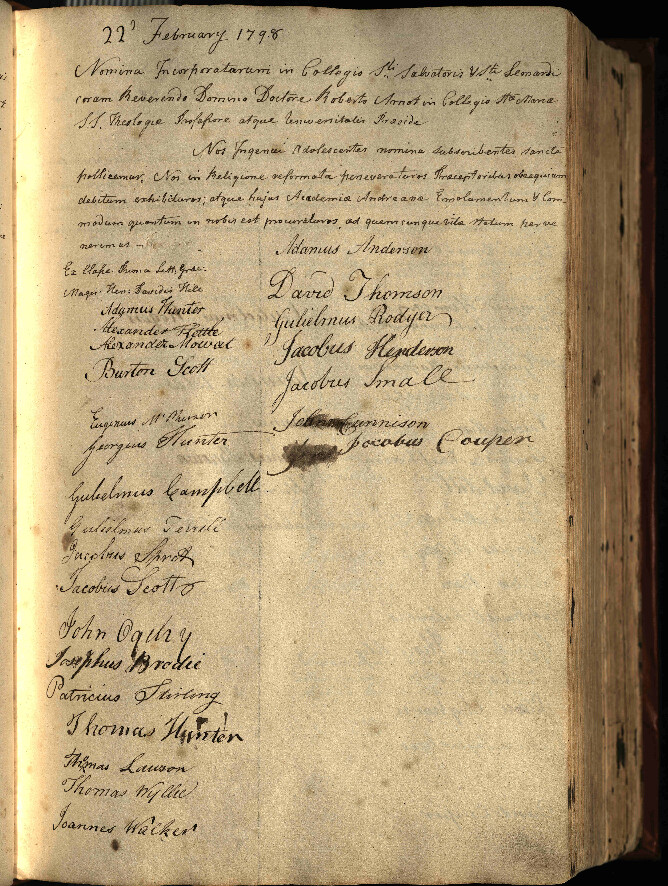 22d February 1798
Nomina Incorporatarum in Collegio Sti Salvatoris & Sti Leonardi
coram Reverendo Domino Doctore Roberto Arnot in Collegio Stae Mariae
S.S. Theologiae Professore atque Universitatis Praeside
Nos Ingenui Adolescentes nomina subscribentes sancte
pollicemur, Nos in Religione reformata perseveraturos Praeceptoribus obsequium
debitum exhibituros; atque hujus Academiae Andreanae Emolumentum & Com
modum quantum in nobis est procuraturos, ad quemcunque vitae statum perve
nerimus
Ex Classe Prima Litt. Graec.
Magis. Hen: Davidis Hill
Adamus Hunter
Alexander
Alexander Mowat
Burton Scott
Eugenius
Georgius Hunter
Gulielmus Campbell
Gulielmus
Jacobus Sprott
Jacobus Scott
John Ogilvy
Josephus Brodie
Patricius Stirling
Thomas Hunter
Thomas Lawson
Thomas Wyllie
Joannes Walker
Adamus Anderson
David Thomson
Gulielmus Rodger
Jacobus Henderson
Jacobus Small
John Cunnison
Jacobus Couper